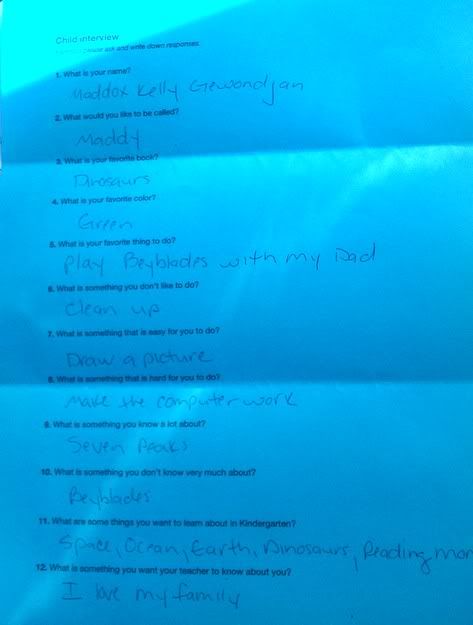 Child Interview
please ask and write down responses.
1. What is your name?
Maddox Kelly Gewondjan
2. What would you like to be called?
Maddy
3. What is your favorite book?
Dinosaurs
4. What is your favorite color?
Green
5. What is your favorite thing to do?
Play Beyblades with my Dad
6. What is something you don't like to do?
Clean up
7. What is something that is easy for you to do?
Draw a picture
8. What is something that is hard for you to do?
Make the computer work
9. What is something you know a lot about?
Seven Peaks
10. What is something you don't know very much about?
Beyblades
11. What are some things you want to learn about in Kindergarten?
Space, Ocean, Earth, Dinosaurs, Reading mor
12. What is something you want your teacher to know about you?
I love my family